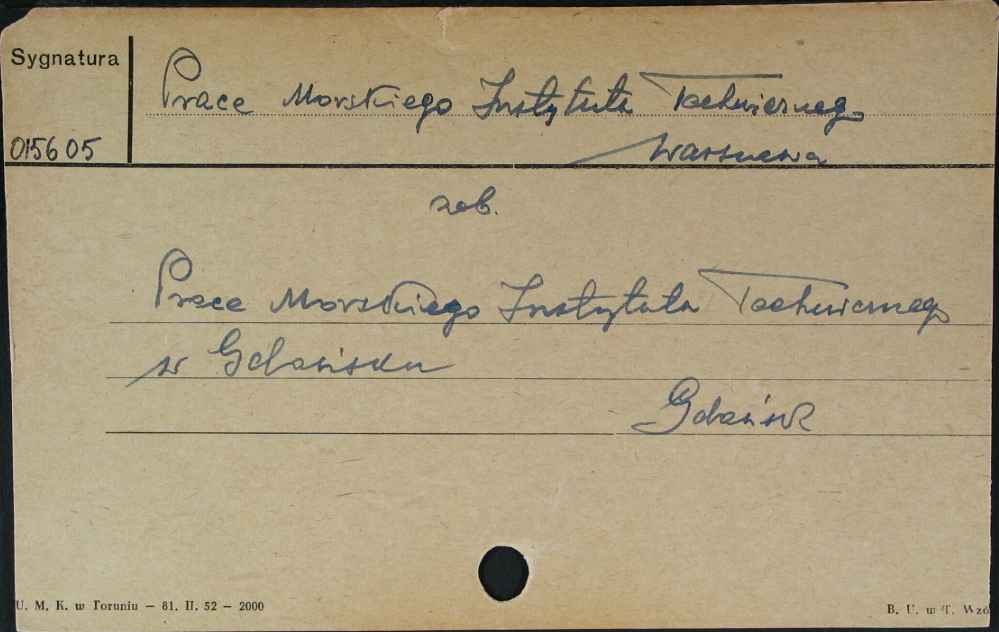 Sygnatura
Prace Morskiego Instytutu Technicznego
015605
Warszawa
zob.
Prace Morskiego Instytutu Technicznego
w Gdańsku
Gdańsk
U. M. K. w Toruniu — 81. II. 52 — 2000
B. U. w T. Wzó